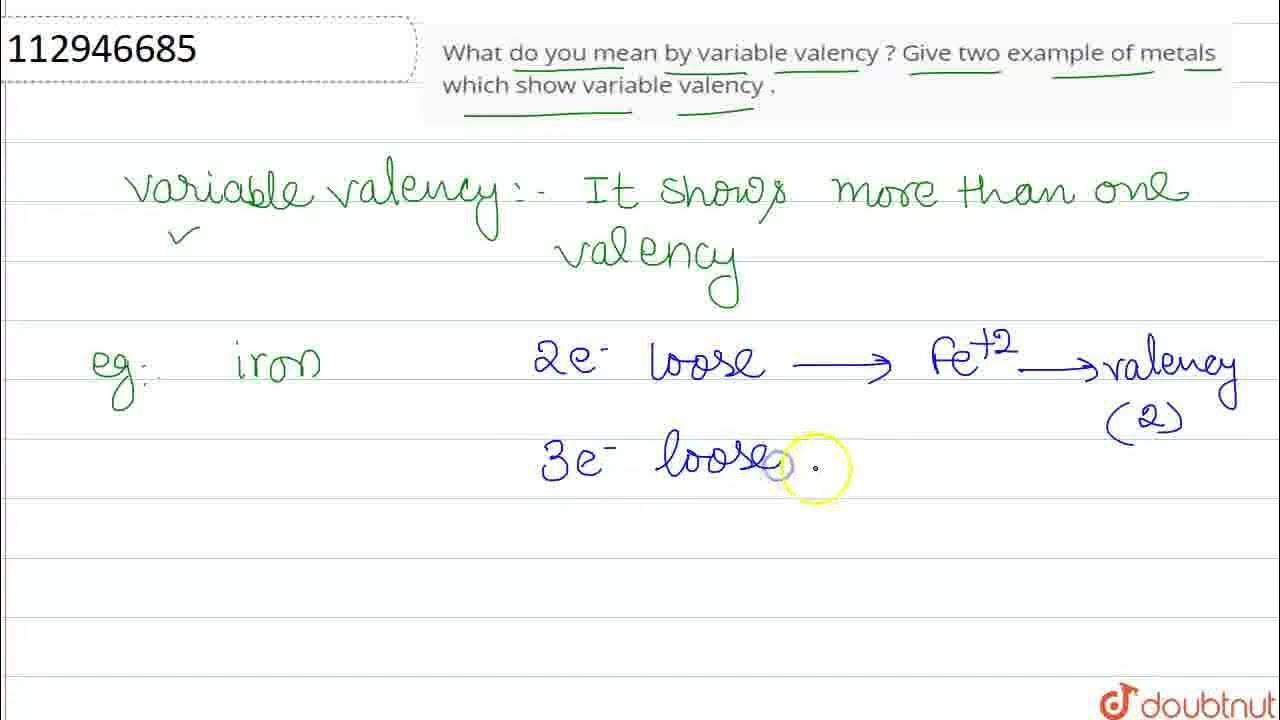 112946685
What do you mean by variable valency ? Give two example of metals
which show variable valency .
variable valency:- It shows more than one
valency
eg:- iron 2e⁻ loose → Fe⁺² → valency
(2)
3e⁻ loose
doubtnut